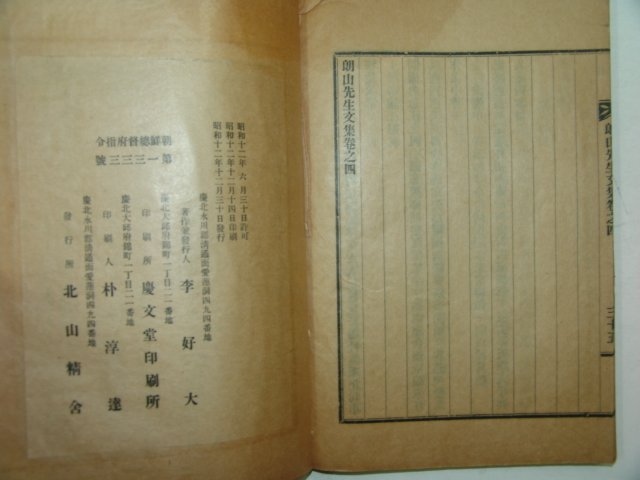 朗山先生文集卷之四
朗山先生文集卷之四
三十五
昭和十二年六月三十日許可
昭和十二年十二月十四日印刷
昭和十二年十二月三十日發行
朝鮮總督府指令
第一三三三號
慶北永川郡淸通面愛蓮洞四九四番地
著作兼發行人 李好大
慶北大邱府錦町一丁目二一番地
印刷所 慶文堂印刷所
慶北大邱府錦町一丁目二一番地
印刷人 朴淳達
慶北永川郡淸通面愛蓮洞四九四番地
發行所 北山精舍